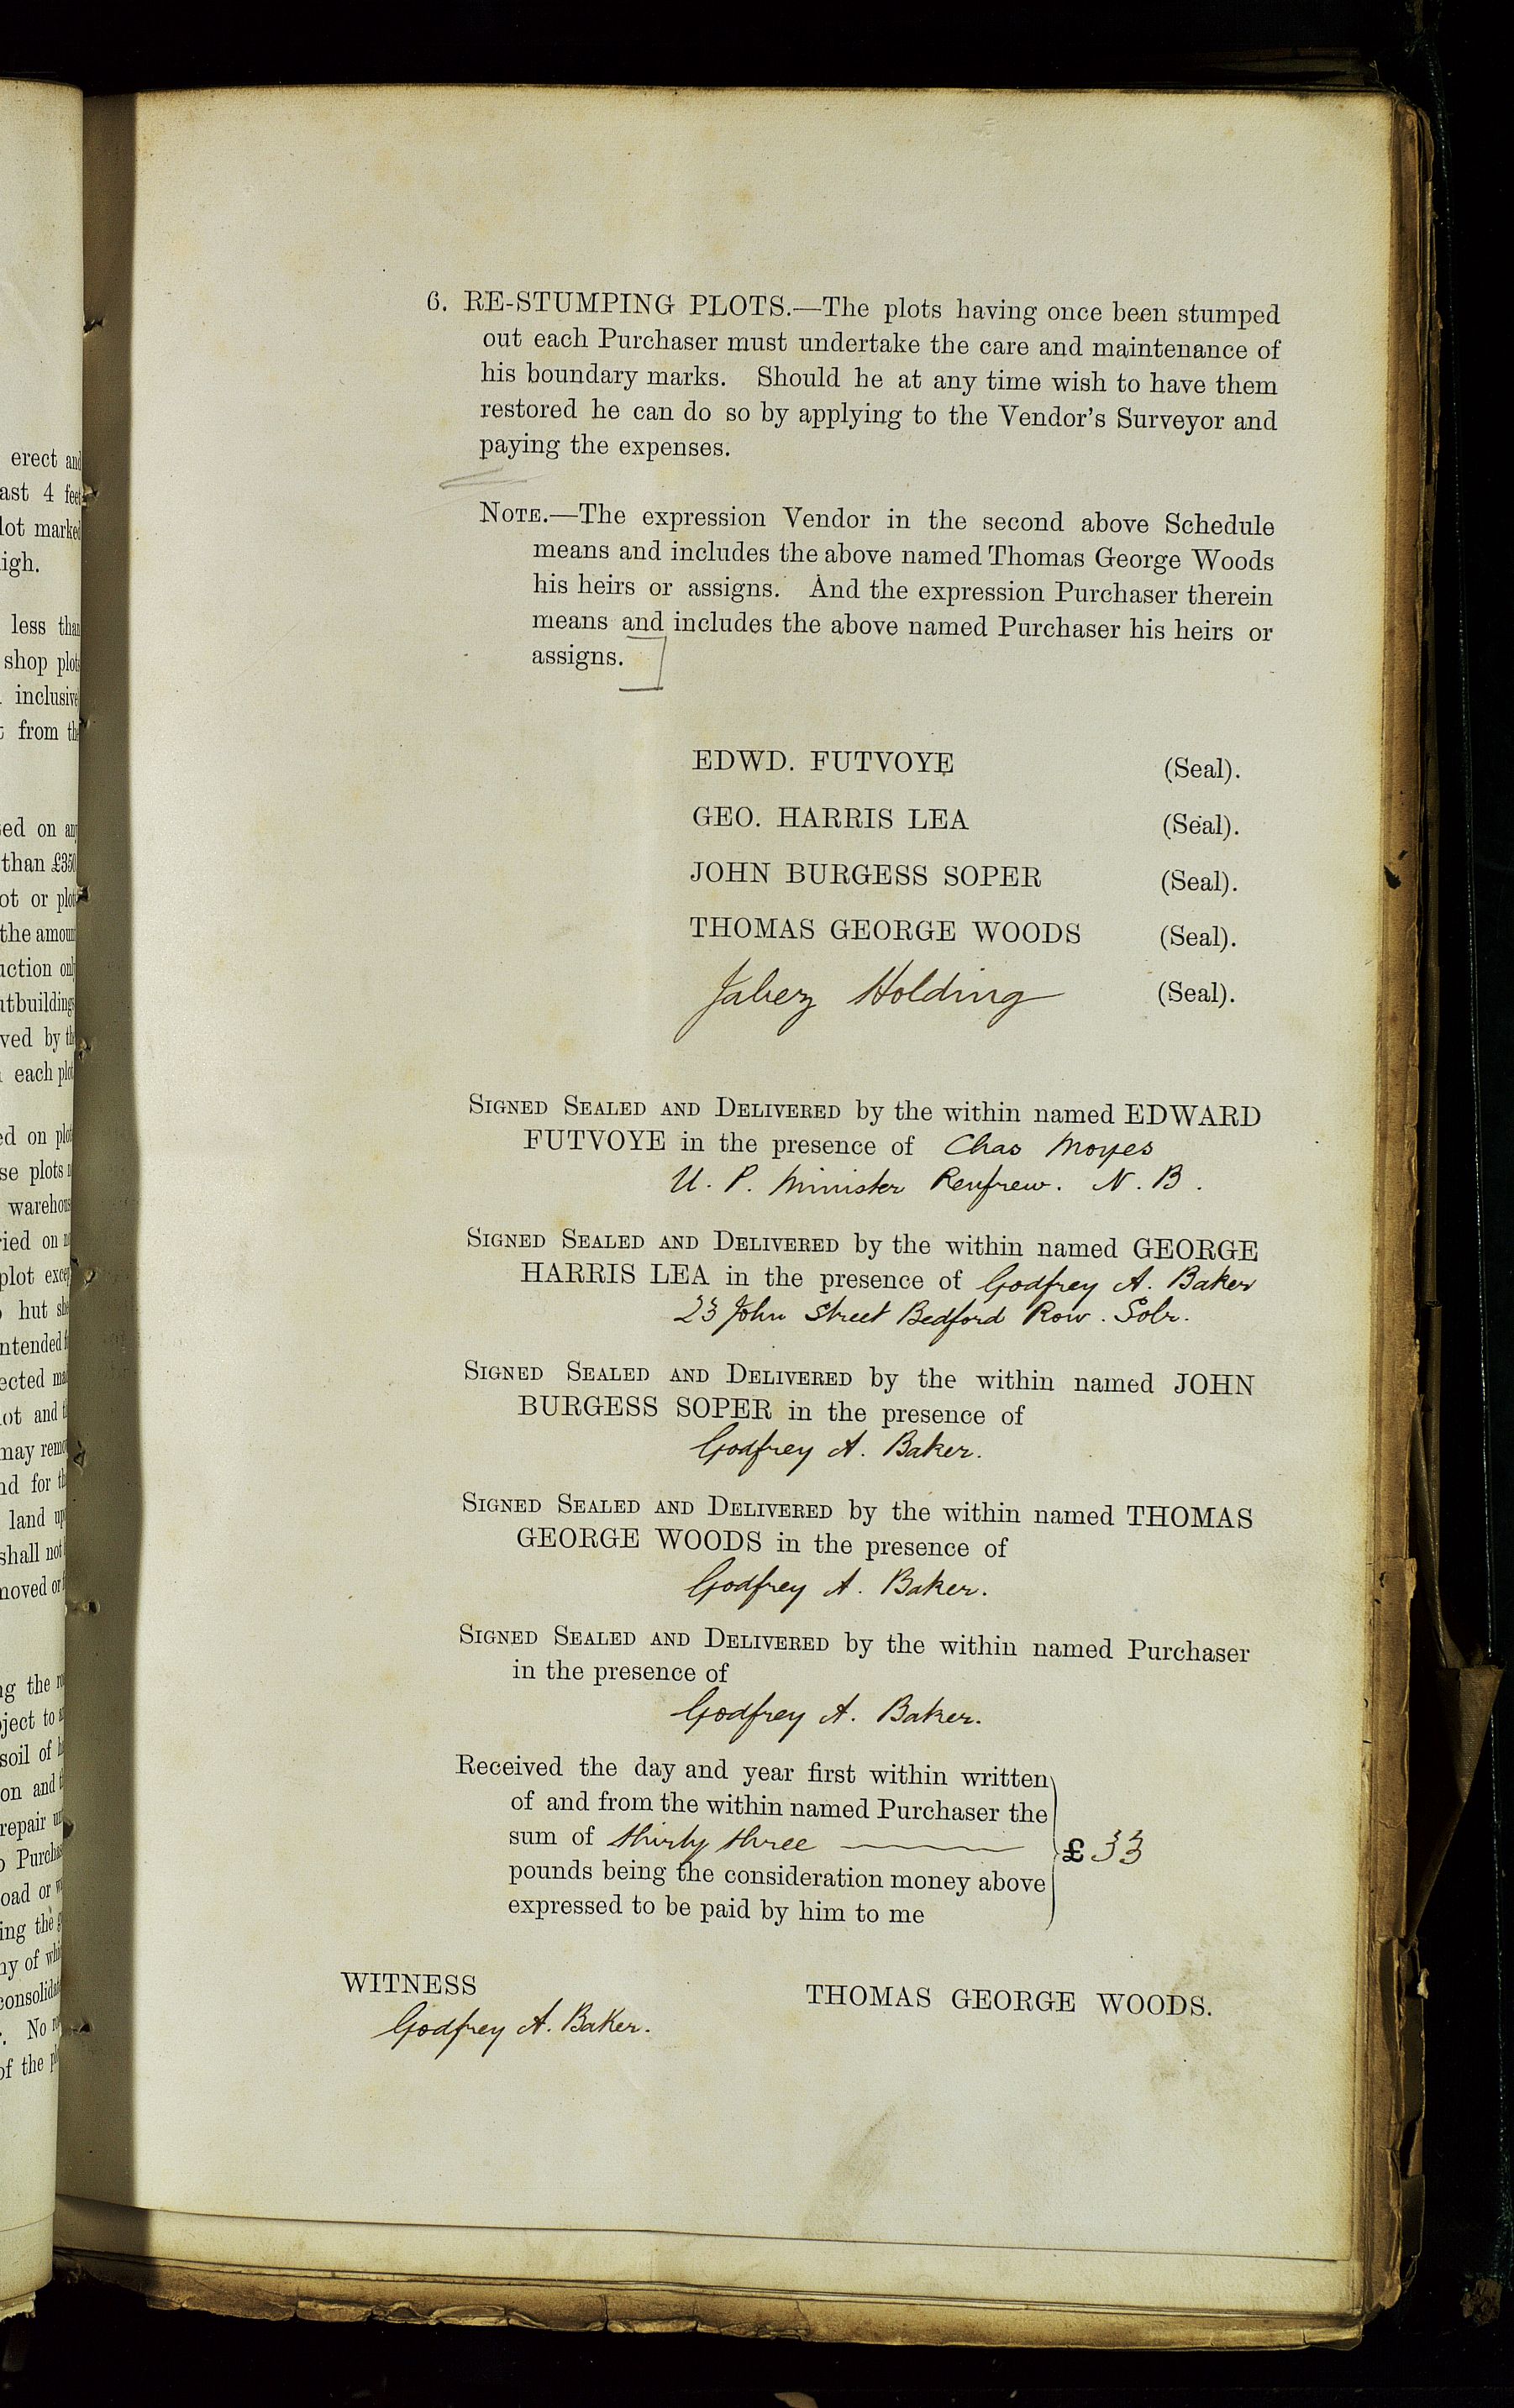 erect and
ast 4 feet
lot marked
igh.
less than
shop plots
inclusive
from the
ed on any
than £350
ot or plot
the amount
uction only
utbuildings
ved by the
each plot
ed on plot
se plots
warehous
ried on
plot excep
hut
ntended
ected
ot and
may remo
nd for th
land up
shall not
moved or
ng the
ject to
soil of
on and
repair
Purcha
oad or
ing the
ny of whi
consolida
No
of the
6. RE-STUMPING PLOTS.—The plots having once been stumped
out each Purchaser must undertake the care and maintenance of
his boundary marks. Should he at any time wish to have them
restored he can do so by applying to the Vendor's Surveyor and
paying the expenses.
NOTE.—The expression Vendor in the second above Schedule
means and includes the above named Thomas George Woods
his heirs or assigns. And the expression Purchaser therein
means and includes the above named Purchaser his heirs or
assigns.
EDWD. FUTVOYE (Seal).
GEO. HARRIS LEA (Seal).
JOHN BURGESS SOPER (Seal).
THOMAS GEORGE WOODS (Seal).
Jabez Holding (Seal).
SIGNED SEALED AND DELIVERED by the within named EDWARD
FUTVOYE in the presence of Chas Moyes
U. P. Minister Renfrew. N. B.
SIGNED SEALED AND DELIVERED by the within named GEORGE
HARRIS LEA in the presence of Godfrey A. Baker
23 John Street Bedford Row. Solr.
SIGNED SEALED AND DELIVERED by the within named JOHN
BURGESS SOPER in the presence of
Godfrey A. Baker.
SIGNED SEALED AND DELIVERED by the within named THOMAS
GEORGE WOODS in the presence of
Godfrey A. Baker.
SIGNED SEALED AND DELIVERED by the within named Purchaser
in the presence of
Godfrey A. Baker.
Received the day and year first within written
of and from the within named Purchaser the
sum of thirty three
£33
pounds being the consideration money above
expressed to be paid by him to me
WITNESS
THOMAS GEORGE WOODS.
Godfrey A. Baker.